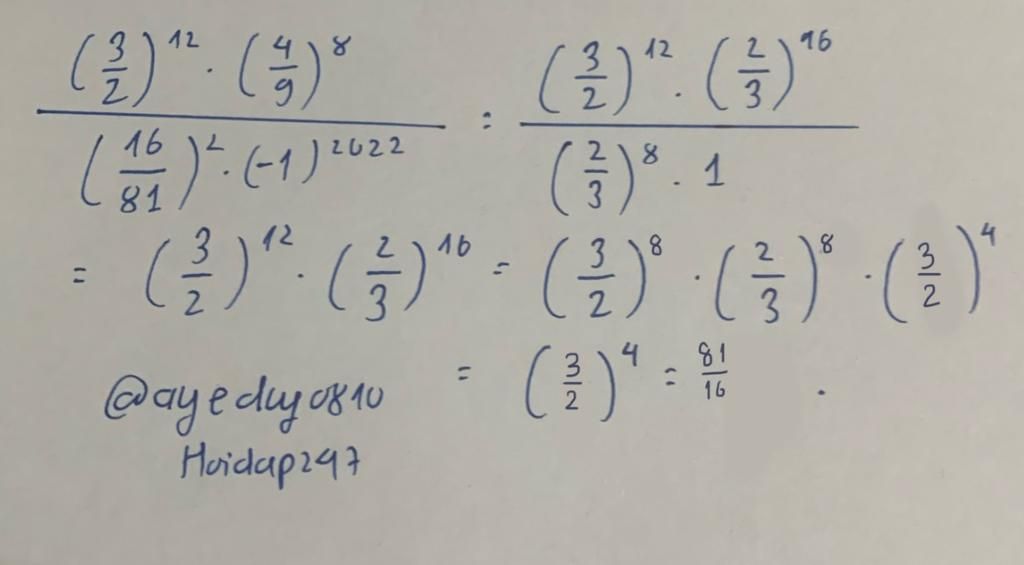 (3/2)^12 · (4/9)^8 / (16/81)^2 · (-1)^2022 = (3/2)^12 · (2/3)^16 / (2/3)^8 · 1
= (3/2)^12 · (2/3)^16 = (3/2)^8 · (2/3)^8 · (3/2)^4
= (3/2)^4 = 81/16 .
@ayeduy0810
Hoidap247